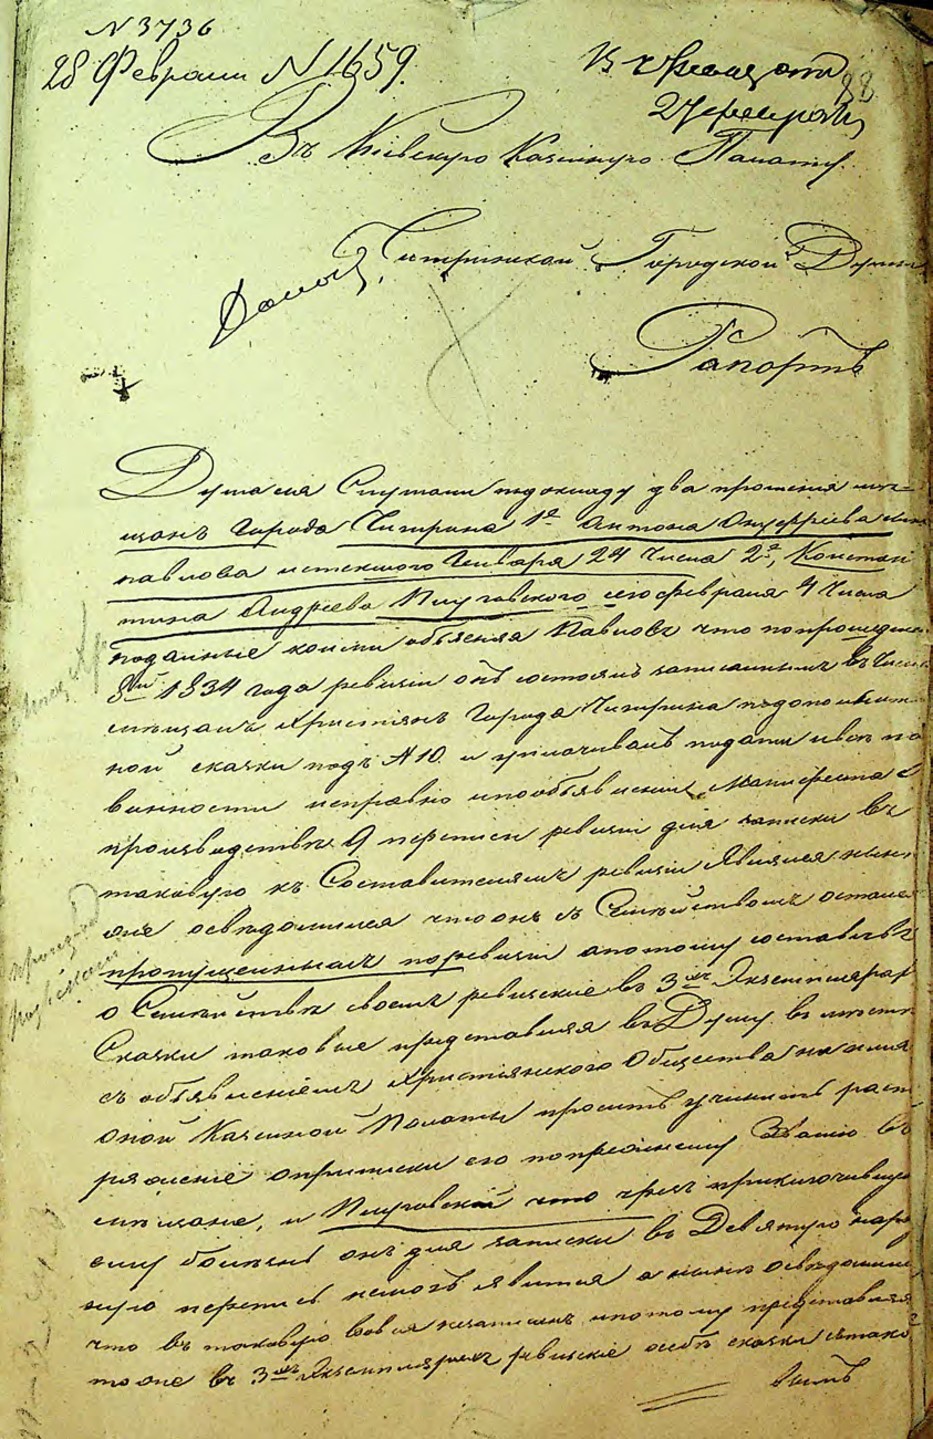 N 3736
28 Февраля N 1659.
88
Въ Кіевскую Казенную Палату.
Чигринской Городской Думы
Рапортъ
Дума сія Слушали подокладу два прошенія мѣ=
щанъ Города Чигрина 1е Антона Онуфріева
павлова истекшого Генваря 24 Числа 2е, Констан
тина Андреева сего февраля 4 Числа
поданные коими объясняя Павловъ что по
8й 1834 года ревизіи онъ состоялъ записаннымъ въ
мѣщанъ Христіянъ Города Чигрина подополнитель
ной сказки подъ N 10. и уплачивалъ подати и всѣ по
винности исправно ипообъявленіи Манифеста о
производствѣ 9 переписи ревизіи для записки въ
таковую къ Составителямъ ревизіи Явился нын
оне освѣдомился что онъ съ Семѣйствомъ остался
пропущеннымъ поревизіи апотому составивъ
о Семѣйствѣ своемъ ревизскіе въ 3хъ Экземплярах
Сказки таковые представляя въ Думу въ мѣстѣ
съ объявленіемъ Христіянского Общества на имя
оной Казенной Палаты проситъ учинить расп
ряженіе оприписки его попрежнему Званію въ
мѣщане, и что чрезъ приключившую
ему болѣзнь онъ для записки въ Девятую наро
ную перепись немогъ явится а нынѣ освѣдомил
что въ таковую вовся незаписанъ ипотому представляя
тоже въ 3хъ Экземплярахъ ревизскіе осебѣ сказки